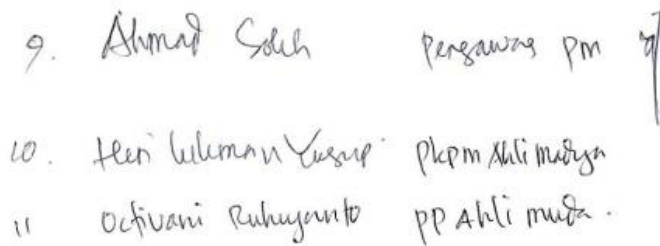 9. Ahmad Soleh Pengawas PM
10. Heri Lukman Yusup PKPM Ahli Madya
11 Octivani Ruhuyanto PP Ahli muda.